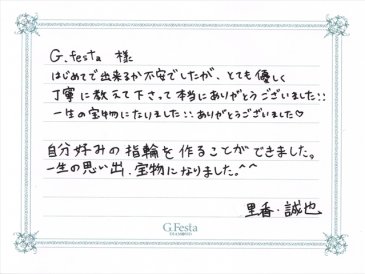 G.festa 様
はじめてで出来るか不安でしたが、とても優しく
丁寧に教えて下さって本当にありがとうございました!!
一生の宝物になりました!!ありがとうございました♡
自分好みの指輪を作ることができました。
一生の思い出、宝物になりました。^^
里香・誠也
G.Festa